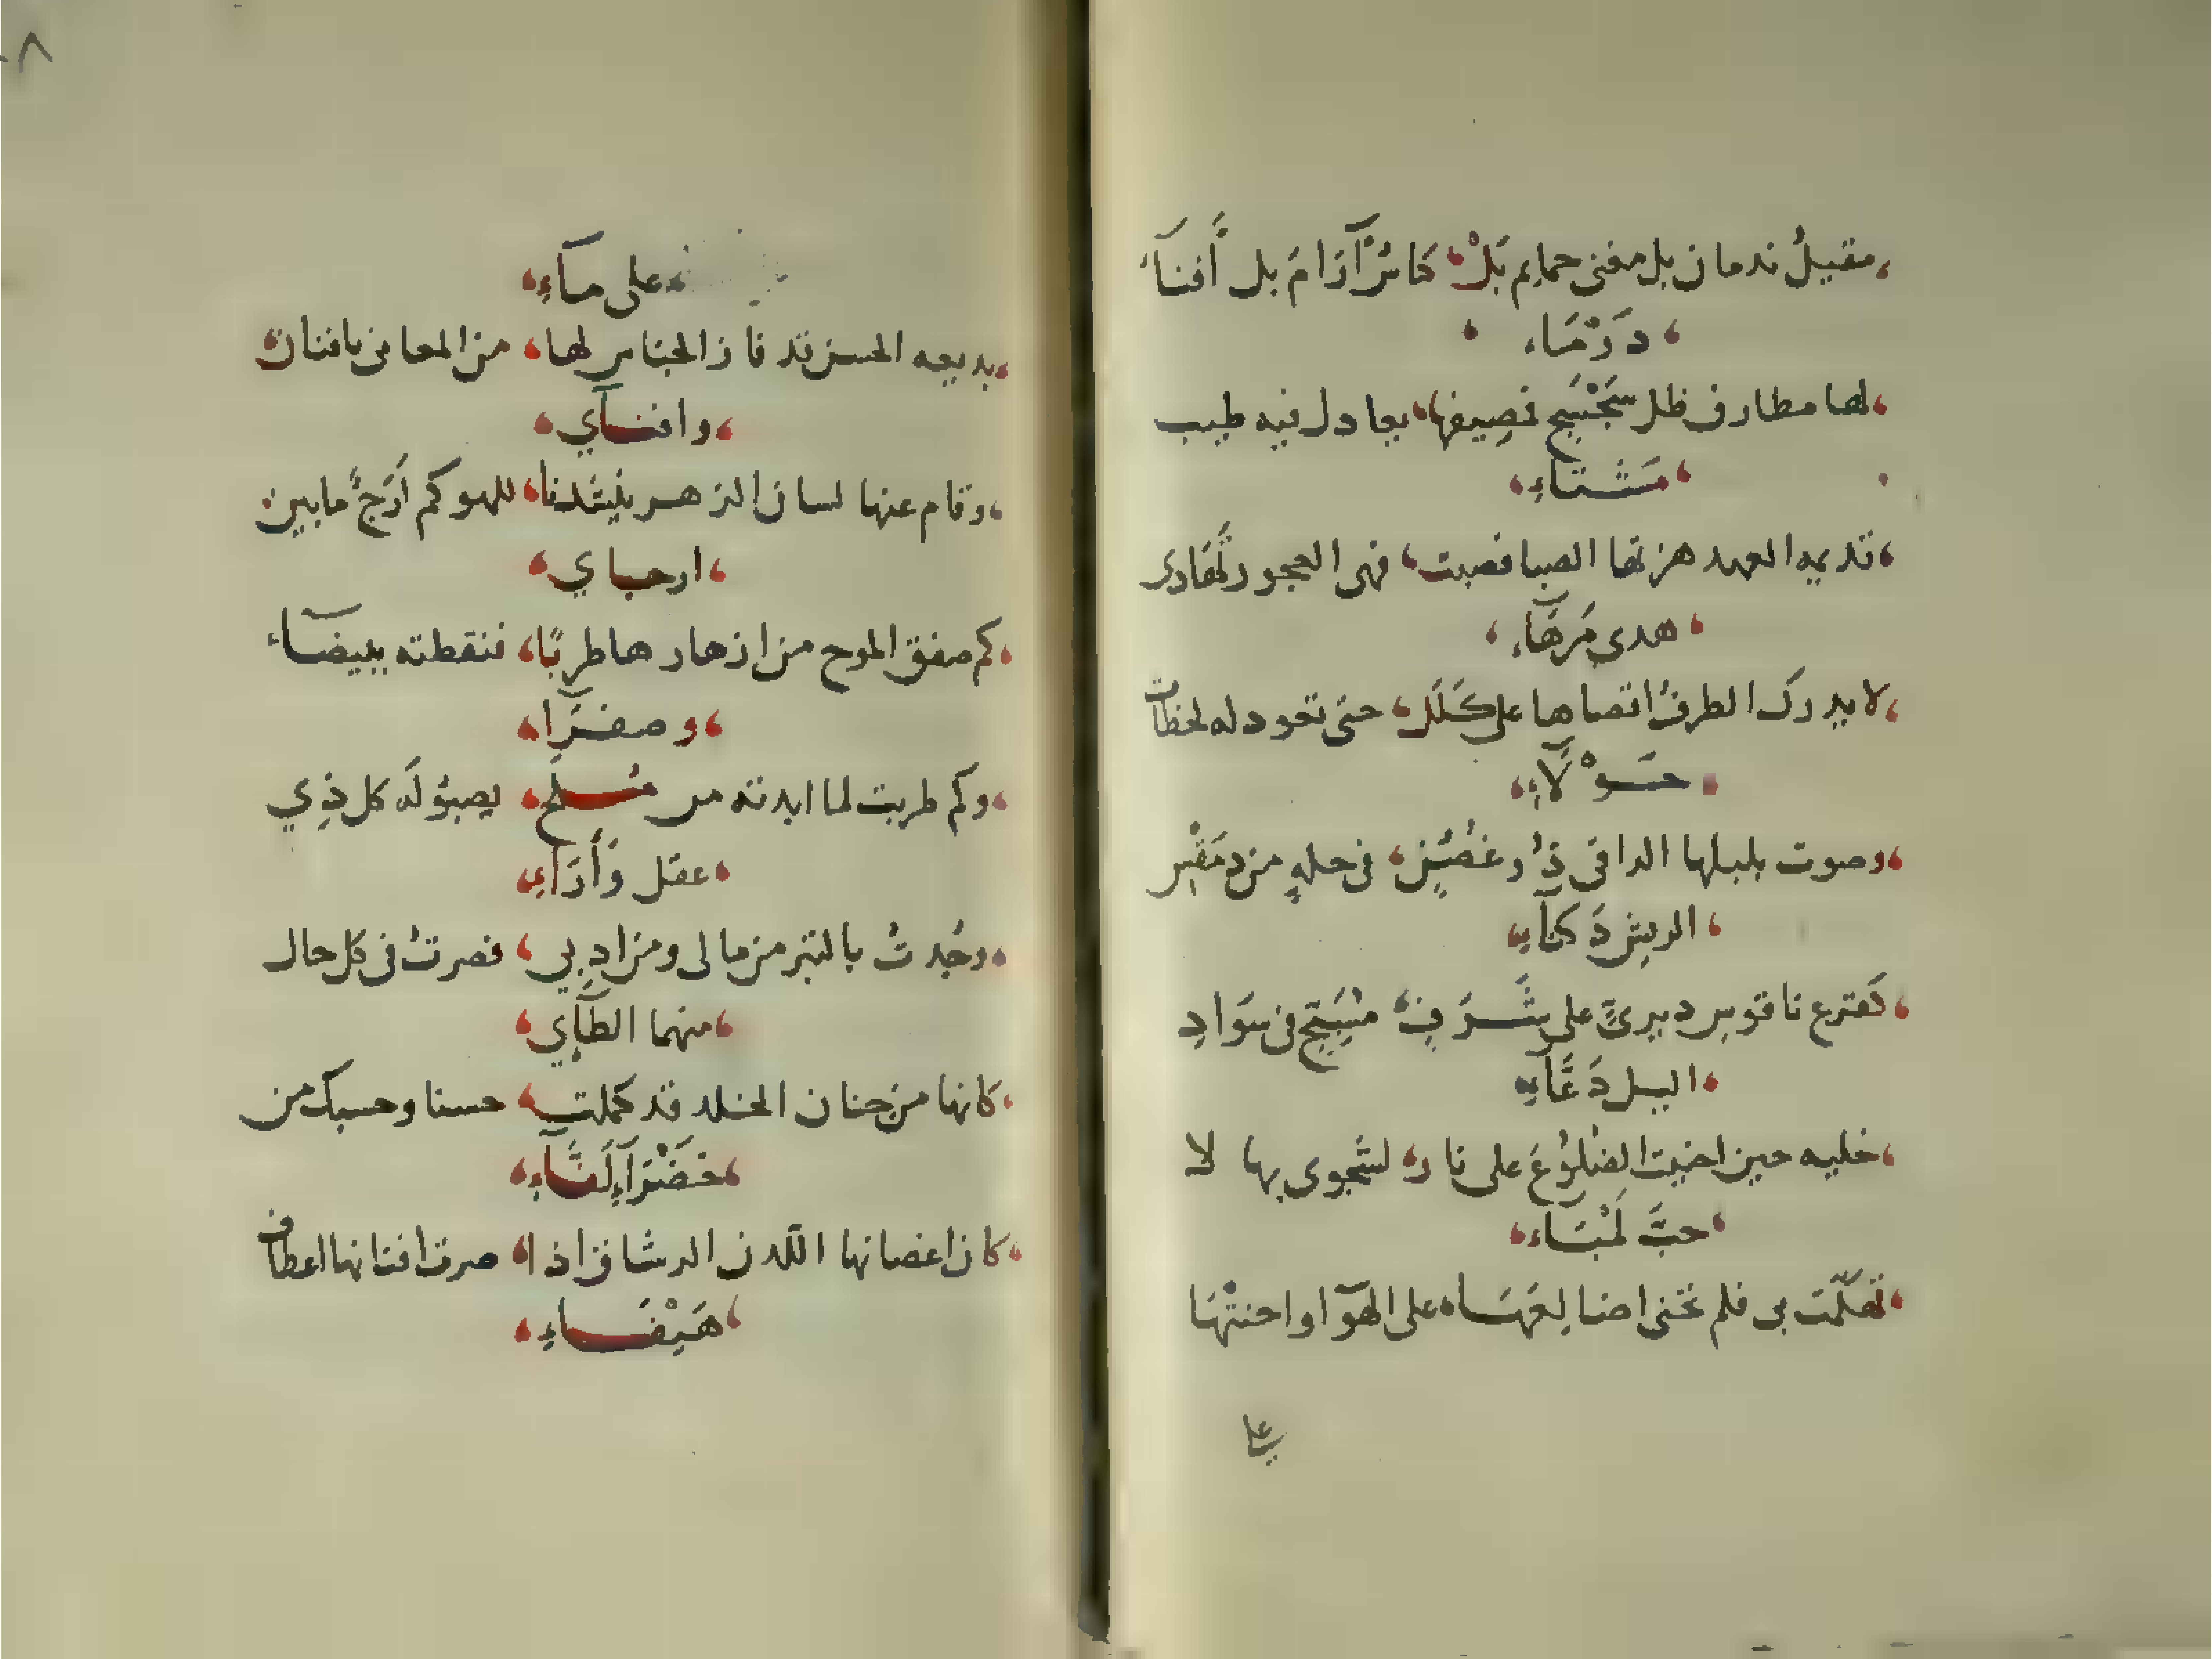 مقيلُ ندمان بل مغنى حمايم بَلْ كناسُ آرَامَ بل أَفنَآءُ
دَرْمَاء
لها مطارف ظل سَجْسَجٍ فصيفها يجادل فيه طيب
مَشتاءِ
قديمه العهد هزتها الصبا فصبت فهى العجوز تَهَادى
هدى مَرهَآء
لا يدرك الطرفُ اقصاها على كَلَل حتى تعود له لحظات
حَوْلآءِ
وصوت بلبلها الراقى ذُرَ غُصُنٍ فى حلهٍ من دمَقْسِ
الريشِ دَكنآءِ
كقرع ناقوس ديرىٍّ على شَرَفٍ مُسَبّحٍ فى سَوَادِ
اليل دَعَّآءِ
خليه حين اخنيت الضلُوعَ على نار لشجوى بها لا
حبَّ لَمْيَاء
تَهكّمَت بى فلم تحنى اضالِعَهَا على الهوآ او احنتْهَا
على
على مآءِ
بديعه الحسن قد فاز الجناس لها من المعانى بافنان
وافنآي
وقام عنها لسان الزهر ينشدنا للهو كم اَرَجٌ ما بين
ارحباي
كم صفق الموج من ازهارها طربًا فنقطته ببيضآء
وصفرَآ
وكم طربت لما ابدته من مُلحٍ يصبوُ لَه كل ذِي
عقل وَأَرَآءِ
وجُدتُ بالتبر من مالى ومن ادبي فصرتُ فى كل حال
منهما الطآي
كانها من جنان الخلد قد كملت حسنا وحسبك من
خَضْرَآءِ لَفَّآءِ
كان اغصانها اللدن الرشاق اذا صرت افنانها اعطاف
هَيْفَاءِ